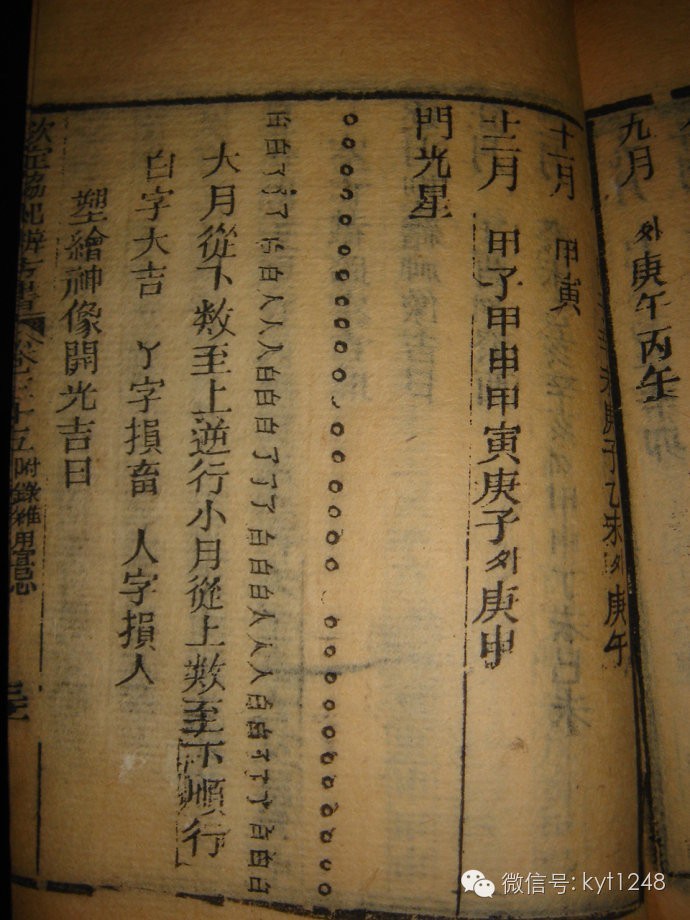 九月 外庚午丙午
未庚子乙未外庚午
十一月 甲寅
十二月 甲子甲申甲寅庚子外庚申
門光星
○○○○○○○○○○○○○○○○○○○○○○○○○○○○○○
白白丫丫丫白白人人人白白白丫丫丫白白白人人人白白丫丫丫白白白
大月從下數至上逆行小月從上數至下順行
白字大吉 丫字損畜 人字損人
塑繪神像開光吉日
欽定協紀辨方書 卷三十五 附錄雜用宜忌
微信号: kyt1248